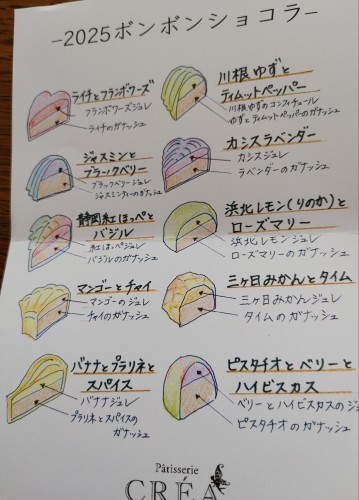 -2025ボンボンショコラ-
ライチとフランボワーズ
フランボワーズジュレ
ライチのガナッシュ
川根ゆずと
ティムットペッパー
川根ゆずのコンフィチュール
ゆずとティムットペッパーのガナッシュ
ジャスミンと
ブラックベリー
ブラックベリージュレ
ジャスミンティーのガナッシュ
カシスラベンダー
カシスジュレ
ラベンダーのガナッシュ
静岡紅ほっぺと
バジル
紅ほっぺジュレ
バジルのガナッシュ
浜北レモン(りのか)と
ローズマリー
浜北レモンジュレ
ローズマリーのガナッシュ
マンゴーとチャイ
マンゴーのジュレ
チャイのガナッシュ
三ヶ日みかんとタイム
三ヶ日みかんジュレ
タイムのガナッシュ
バナナとプラリネと
スパイス
バナナジュレ
プラリネとスパイスの
ガナッシュ
ピスタチオとベリーと
ハイビスカス
ベリーとハイビスカスのジュ
ピスタチオのガナッシュ
Pâtisserie
CRÉA